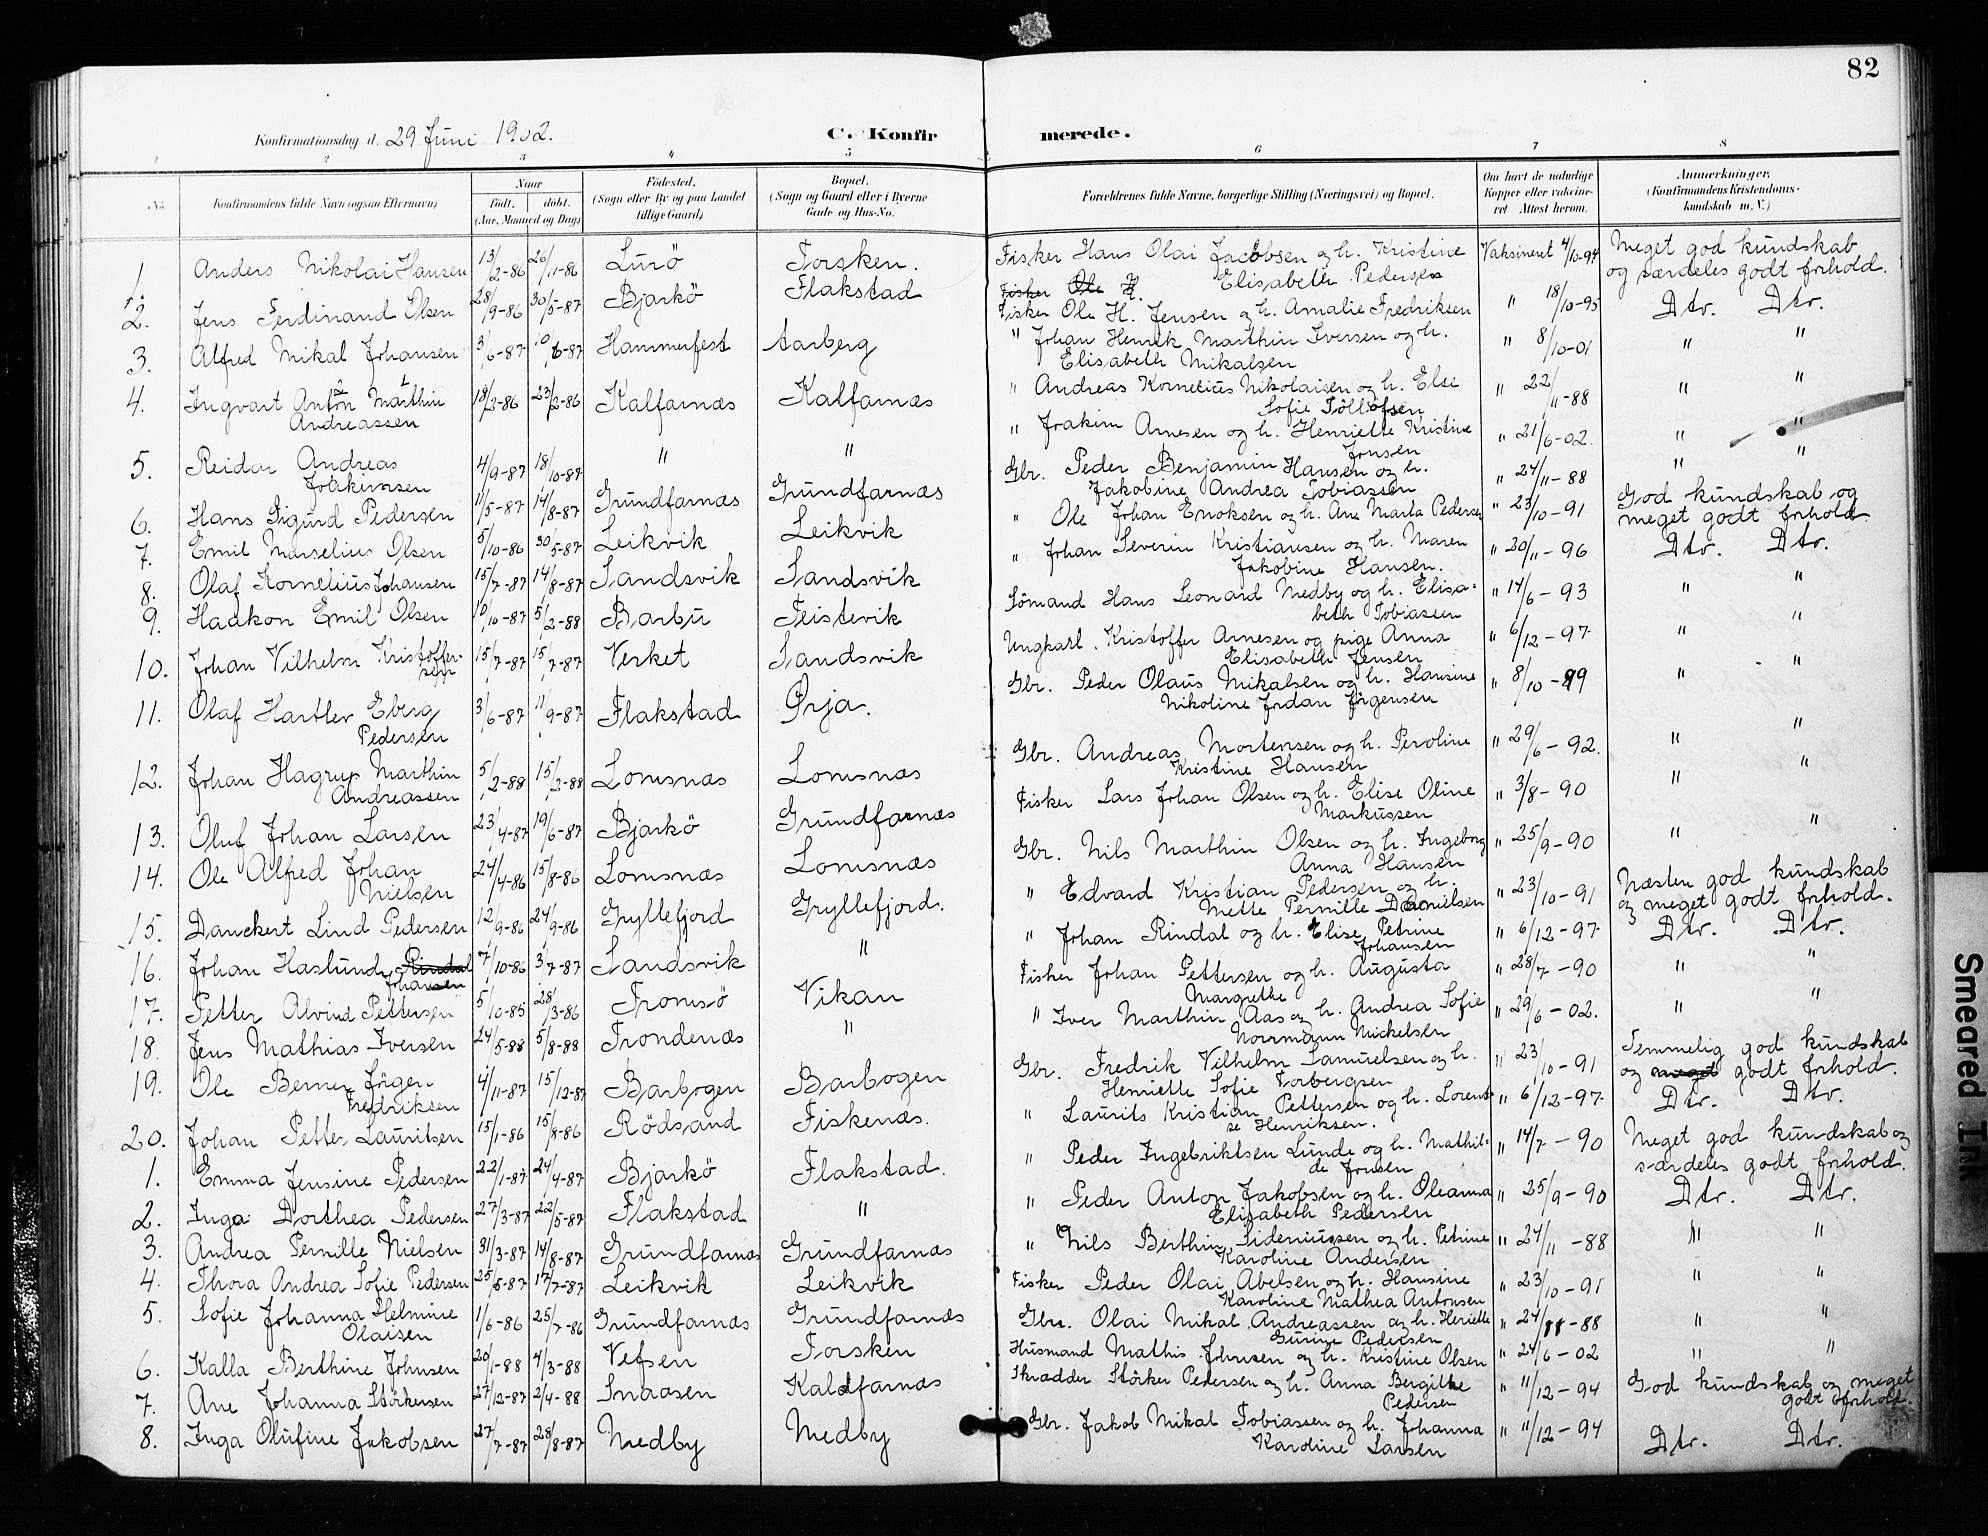 82
Konfirmationsdag d. 29 Juni 1902.
C. Konfirmerede.
1 2 3 4 5 6 7 8
No.
Konfirmandens fulde Navn (ogsaa Efternavn)
Naar
født. døbt.
(Aar, Maaned og Dag)
Fødested.
(Sogn eller By og paa Landet
tillige Gaard)
Bopæl.
(Sogn og Gaard eller i Byerne
Gade og Hus-No.
Forældrenes fulde Navne, borgerlige Stilling (Næringsvei) og Bopæl.
Om havt de naturlige
Kopper eller vakcine-
ret Attest herom.
Anmærkninger.
(Konfirmandens Kristendoms-
kundskab m. V.)
1 Anders Nikolai Hansen 13/2-86 26/11-86 Lurö Torsken. Fisker Hans Olai Jacobsen og h. Kristine Elisabeth Pedersen Vaksineret 4/10-94 Meget god kundskab og særdeles godt forhold.
2. Jens Ferdinand Olsen 28/9-86 30/5-87 Bjarkö Flakstad Fisker Ole H. Jensen og h. Amalie Fredriksen " 18/10-95 Dtr. Dtr.
3. Alfred Mikal Johansen 3/6-87 10/6-87 Hammerfest Aarberg " Johan Henrik Marthin Iversen og h. Elisabeth Mikalsen " 8/10-01 " "
4. Ingvart Anton Marthin Andreassen 18/2-86 23/2-86 Kalfarnæs Kalfarnæs " Andreas Kornelius Nikolaisen og h. Else Sofie Tollofsen " 22/11-88 " "
5. Reidar Andreas Joakimsen 4/9-87 18/10-87 " " " Joakim Arnesen og h. Henriette Kristine Jensen " 21/6-02. " "
6. Hans Sigurd Pedersen 11/5-87 14/8-87 Grundfarnæs Grundfarnæs Gbr. Peder Benjamin Hansen og h. Jakobine Andrea Tobiassen " 24/11-88 " "
7. Emil Marselius Olsen 5/10-86 30/5-87 Leikvik Leikvik " Ole Johan Enoksen og h. Ane Marta Pedersen " 23/10-91 God kundskab og meget godt forhold.
8. Olaf Kornelius Johansen 15/7-87 14/8-87 Sandsvik Sandsvik " Johan Severin Kristiansen og h. Maren Jakobine Hansen. " 30/11-96 Dtr. Dtr.
9. Haakon Emil Olsen 10/10-87 5/2-88 Barbu Teistevik Sömand Hans Leonard Medby og h. Elisabeth Tobiassen " 14/6-93 " "
10. Johan Vilhelm Kristoffersen 15/7-87 15/7-87 Verket Sandsvik Ungkarl. Kristoffer Arnesen og pige Anna Elisabeth Jensen " 6/12-97 " "
11. Olaf Hartler Eberg Pedersen 3/6-87 11/9-87 Flakstad Ørja. Gbr. Peder Olaus Mikalsen og h. Hansine Nikoline Jordan Jörgensen " 8/10-99 " "
12. Johan Hagrup Marthin Andreassen 5/2-88 15/2-88 Lomsnæs Lomsnæs Gbr. Andreas Mortensen og h. Peroline Kristine Hansen " 29/6-92. " "
13. Oluf Johan Larsen 23/4-87 19/6-87 Bjarkö Grundfarnæs Fisker Lars Johan Olsen og h. Elise Oline Markussen " 3/8-90 " "
14. Ole Alfred Johan Nielsen 24/4-86 15/8-86 Lomsnæs Lomsnæs Gbr. Nils Marthin Olsen og h. Ingeborg Anna Hansen " 25/9-90 " "
15. Danckert Lind Pedersen 12/9-86 24/9-86 Gryllefjord Gryllefjord. " Edvard Kristian Pedersen og h. Mette Pernille Danielsen " 23/10-91 Næsten god kundskab og meget godt forhold.
16. Johan Haslund Rindal Johansen 7/10-86 3/7-87 Sandsvik " " Johan Rindal og h. Elise Petrine Johansen " 6/12-97 Dtr. Dtr.
17. Petter Alvind Pettersen 5/10-85 28/3-86 Tromsö Vikan Fisker Johan Pettersen og h. Augusta Margrethe " 28/7-90 " "
18. Jens Mathias Iversen 24/5-88 5/8-88 Trondenæs " " Iver Marthin Aas og h. Andrea Sofie Norrmann Mickelsen " 29/6-02. " "
19. Ole Berner Jörgen Fredriksen 4/11-87 15/12-87 Barbogen Barbogen Gbr. Fredrik Vilhelm Samuelsen og h. Henriette Sofie Torbergsen " 23/10-91 Temmelig god kundskab og meget godt forhold.
20. Johan Petter Lauritsen 15/1-86 15/8-86 Rödsand Fiskenæs. " Laurits Kristian Pettersen og h. Lorentse Henriksen. " 6/12-97 Dtr. Dtr.
1. Emma Jensine Pedersen 22/1-87 24/4-87 Bjarkö Flakstad. " Peder Ingebriktsen Lunde og h. Mathilde Jensen " 14/7-90 Meget god kundskab og særdeles godt forhold.
2. Inga Dorthea Pedersen 27/3-87 22/5-87 Flakstad " " Peder Anton Jakobsen og h. Oleanna Elisabeth Pedersen " 25/9-90 Dtr. Dtr.
3. Andrea Pernille Nielsen 31/3-87 14/8-87 Grundfarnæs Grundfarnæs " Nils Berthin Sideniussen og h. Petrine Karoline Andersen " 24/11-88 " "
4. Thora Andrea Sofie Pedersen 25/5-87 17/7-87 Leikvik Leikvik Fisker Peder Olai Abelsen og h. Hansine Karoline Mathea Antonsen " 23/10-91 " "
5. Sofie Johanna Helmine Olaisen 1/6-86 25/7-86 Grundfarnæs Grundfarnæs Gbr. Olai Mikal Andreassen og h. Henriette Gurine Pedersen " 24/11-88 " "
6. Kalla Berthine Johnsen 20/1-88 4/3-88 Vefsen Torsken Husmand Mathis Johnsen og h. Kristine Olsen " 24/6-02 " "
7. Ane Johanna Störkersen 27/12-87 2/4-88 Snaasen Kaldfarnæs Skrædder Störker Pedersen og h. Anna Bergitte Pedersen " 11/12-94 God kundskab og meget godt forhold.
8. Inga Olufine Jakobsen 27/7-87 28/8-87 Medby Medby Gbr. Jakob Mikal Tobiassen og h. Johanna Karoline Larsen " 11/12-94 Dtr. Dtr.
Smeared Ink